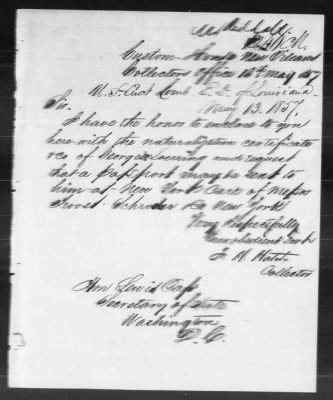 Custom House New Orleans
Collectors Office 13th May 157
of Louisiana
May 13. 1857.
Sir.
I have the honor to enclose to you
herewith the naturalization certificate
&c of George and request
that a Passport may be sent to
him at New York Care of Messrs
Schroder & Co New York
Very Respectfully
Your obedient Servt
F. H. Hatch
Collector
Hon Lewis Cass
Secretary of State
Washington
D. C.